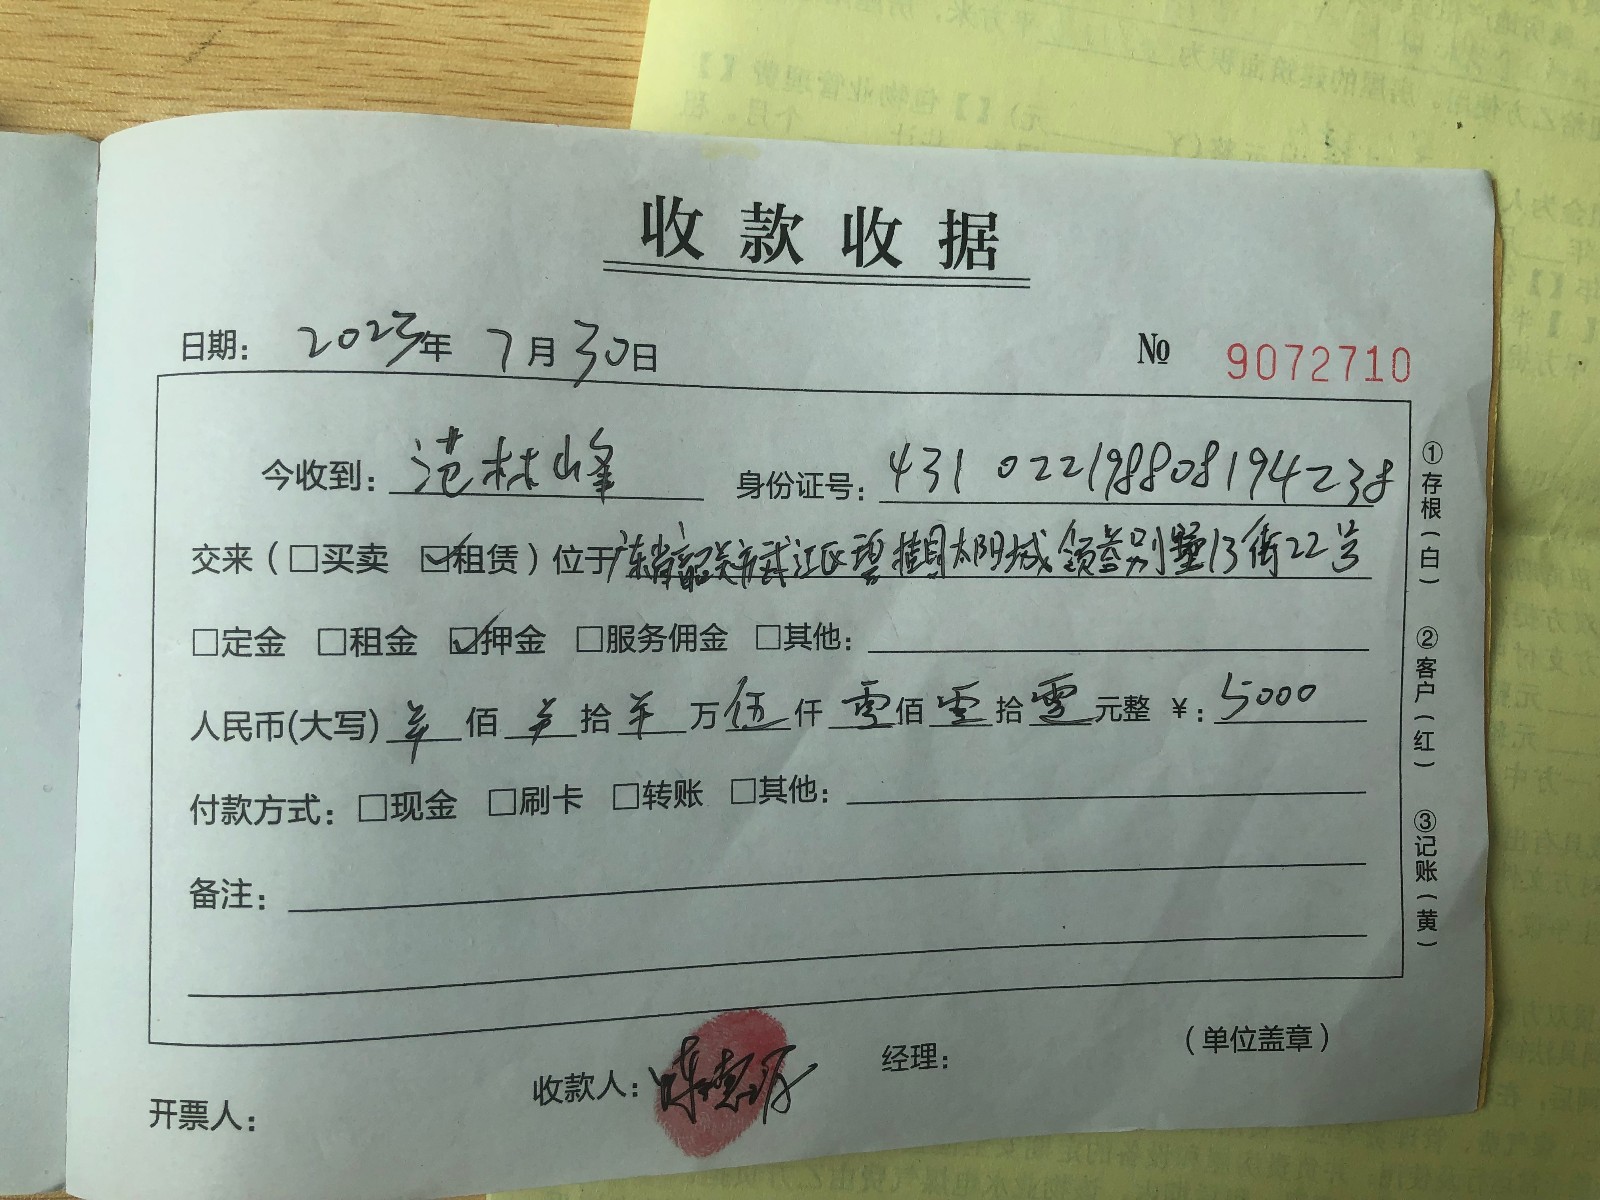 收款收据
日期： 2023年 7月30日 № 9072710
今收到：范林峰 身份证号：431022198808194238
交来（□买卖 ☑租赁）位于广东省韶关市武江区碧桂园太阳城领峯别墅13街22号
□定金 □租金 ☑押金 □服务佣金 □其他：
人民币(大写) 羊 佰 羊 拾 羊 万 伍 仟 零 佰 零 拾 零 元整 ¥：5000
付款方式：□现金 □刷卡 □转账 □其他：
备注：
（单位盖章）
收款人： 经理：
开票人：
①存根（白）
②客户（红）
③记账（黄）